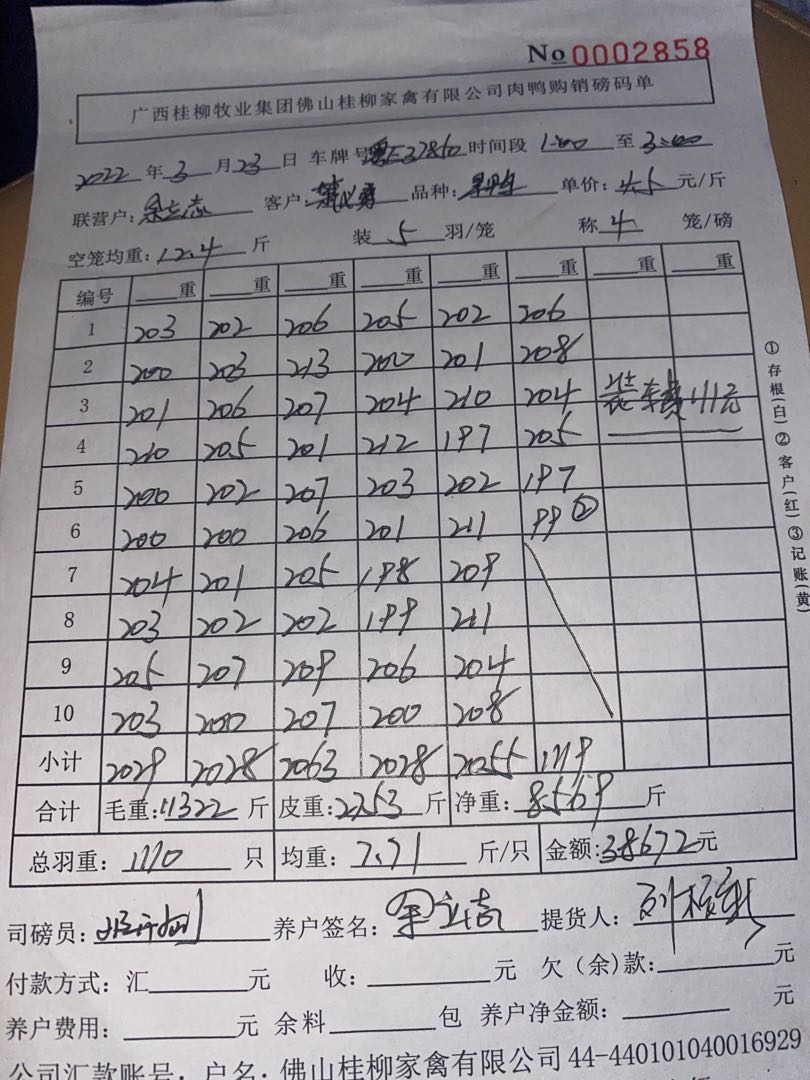 No 0002858
广西桂柳牧业集团佛山桂柳家禽有限公司肉鸭购销磅码单
2022 年 3 月 23 日 车牌号 粤E37860 时间段 1:00 至 3:00
联营户: 余立志 客户: 品种: 单价: 4.5 元/斤
空笼均重: 12.4 斤 装 5 羽/笼 称 4 笼/磅
编号 重 重 重 重 重 重 重 重
1 203 202 206 205 202 206
2 200 203 213 200 201 208
3 201 206 207 204 210 204 装车费411元
4 210 205 201 212 197 205
5 200 202 207 203 202 197
6 200 200 206 201 211 99②
7 204 201 205 198 209
8 203 202 202 199 211
9 205 207 209 206 204
10 203 200 207 200 208
小计 2029 2028 2063 2028 2055 1119
合计 毛重: 11322 斤 皮重: 2753 斤 净重: 8569 斤
总羽重: 1110 只 均重: 7.71 斤/只 金额: 38672 元
司磅员: 养户签名: 余立志 提货人:
付款方式: 汇 元 收: 元 欠(余)款: 元
养户费用: 元 余料 包 养户净金额: 元
公司汇款账号: 户名: 佛山桂柳家禽有限公司 44-440101040016929
①存根(白)②客户(红)③记账(黄)